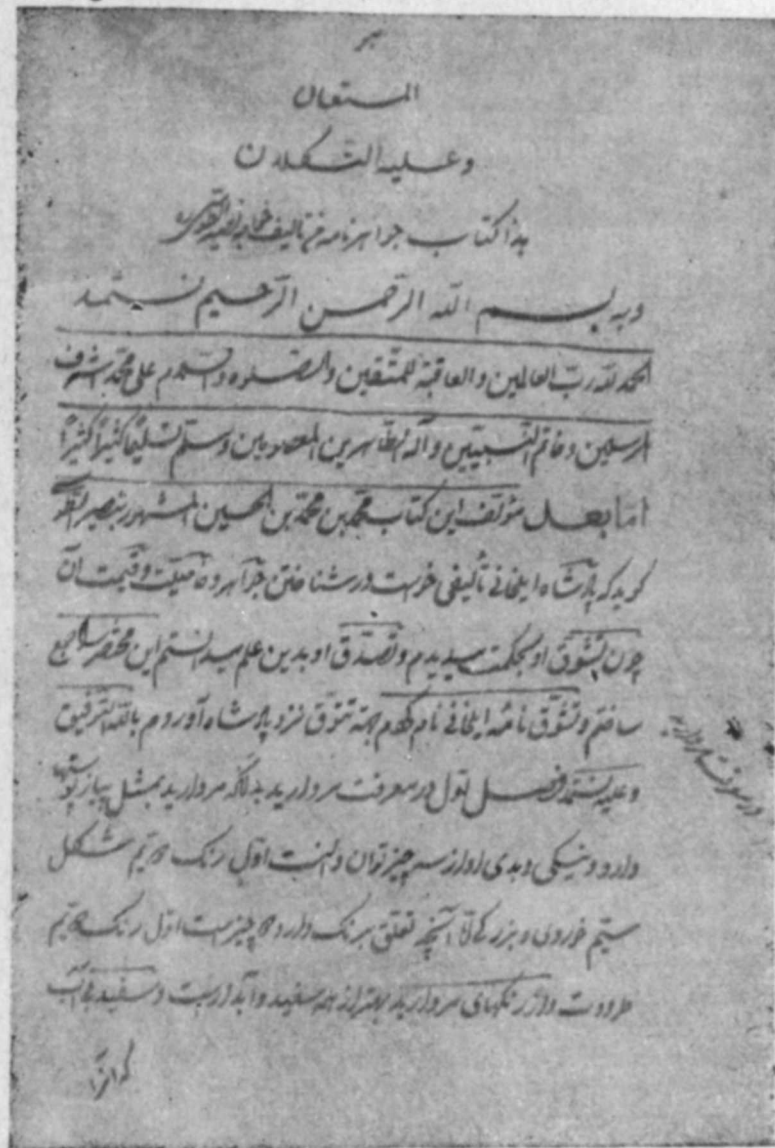 هو
المستعان
وعلیه التکلان
هذا کتاب جواهرنامه من تالیف خواجه نصیر الطوسی
وبه بسم الله الرحمن الرحیم نستمد
الحمد لله رب العالمین والعاقبة للمتقین والصلوة والسلام علی محمد اشرف
المرسلین وخاتم النبیین وآله الطاهرین المعصومین وسلم تسلیماً کثیراً کثیراً
اما بعد مؤلف این کتاب محمد بن محمد بن الحسین المشهور بنصیر الطوسی
کوید که پادشاه ایلخانی تألیفی خواست در شناختن جواهر وخاصیت وقیمت آن
چون تشوق او بحکمت میدیدم وتصدق او بدین علم میدانستم این مختصر جمع
ساختم وتنسوق نامه ایلخانی نام کردم بهتر تنسوق نزد پادشاه آوردم بالله التوفیق
وعلیه نستمد فصل اول در معرفت مروارید بدانکه مروارید بمثل پیاز پوستها
دارد ونیکی وبدی او از سه چیز توان دانست اول رنک دویم شکل
سیم خوردی وبزرکی اما آنچه تعلق برنک دارد دو چیز است اول رنک دویم
طراوت واز رنکهای مروارید بهتر از همه سفید وآبدارست وسفید بی آب
که آنرا
در معرفت مروارید